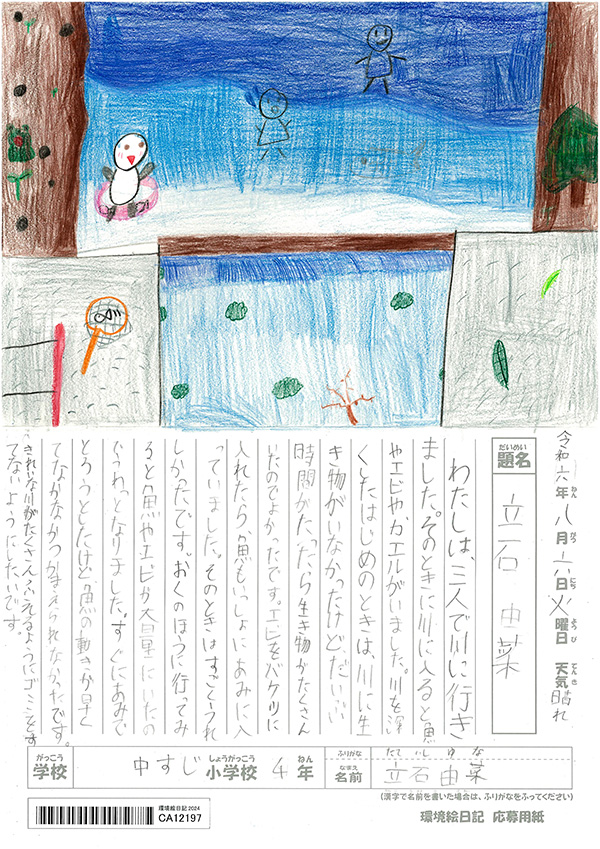 令和六年八月六日火曜日 天気晴れ
ねん がつ にち ようび てんき
だいめい
題名
立石 由菜
わたしは、三人で川に行き
ました。そのときに川に入ると魚
やエビやカエルがいました。川を探
くしたはじめのときは、川に生
き物がいなかったけど、だいぶ
時間がたったら生き物がたくさん
いたのでよかったです。エビをバケツに
入れたら、魚もいっしょにあみに入
っていました。そのときはすごくうれ
しかったです。おくのほうに行ってみ
ると魚やエビが大量にいたの
でうわっとなりました。すぐにあみで
とろうとしたけど、魚の動きが早く
てなかなかつかまえられなかったです。
きれいな川がたくさんふえるようにゴミをす
てないようにしたいです。
がっこう しょうがっこう ねん
学校 中すじ 小学校 4年
ふりがな たていし ゆな
なまえ
名前 立石由菜
(漢字で名前を書いた場合は、ふりがなをふってください)
環境絵日記2024
CA12197
環境絵日記 応募用紙